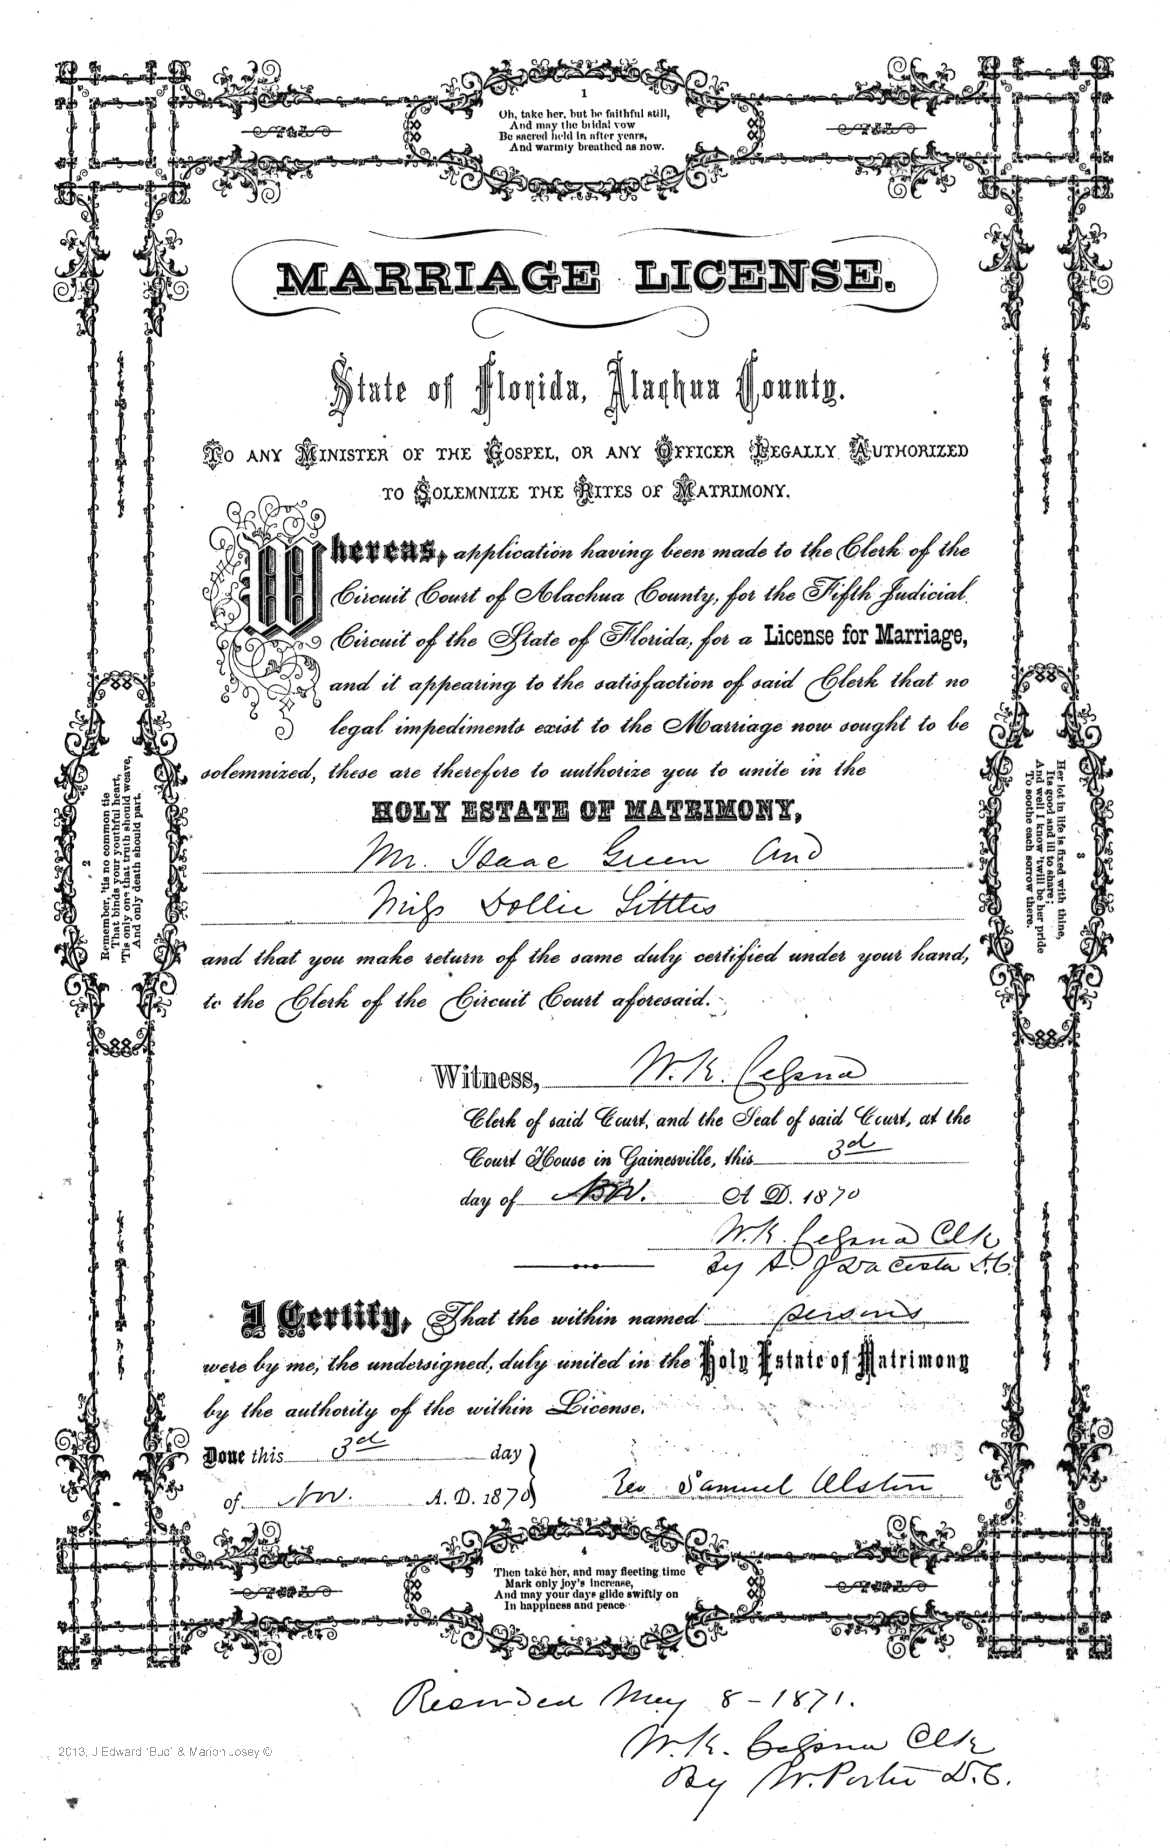 1
Oh, take her, but be faithful still,
And may the bridal vow
Be sacred held in after years,
And warmly breathed as now.
MARRIAGE LICENSE.
State of Florida, Alachua County.
TO ANY MINISTER OF THE GOSPEL, OR ANY OFFICER LEGALLY AUTHORIZED
TO SOLEMNIZE THE RITES OF MATRIMONY.
Whereas, application having been made to the Clerk of the
Circuit Court of Alachua County, for the Fifth Judicial
Circuit of the State of Florida, for a License for Marriage,
and it appearing to the satisfaction of said Clerk that no
legal impediments exist to the Marriage now sought to be
solemnized, these are therefore to authorize you to unite in the
HOLY ESTATE OF MATRIMONY,
Mr. Isaac Green And
Miss Dollie Littles
and that you make return of the same duly certified under your hand,
to the Clerk of the Circuit Court aforesaid.
2
Remember, 'tis no common tie
That binds your youthful heart,
'Tis only one that truth should weave,
And only death should part.
3
Her lot in life is fixed with thine,
Its good and ill to share;
And well I know 'twill be her pride
To soothe each sorrow there.
Witness, W. K. Cessna
Clerk of said Court, and the Seal of said Court, at the
Court House in Gainesville, this 3d
day of Nov. A D. 1870
W. K. Cessna Clk
By A. J DaCosta D.C.
I Certify, That the within named persons
were by me, the undersigned, duly united in the Holy Estate of Matrimony
by the authority of the within License.
Done this 3d day
of Nov. A. D. 1870
Rev Samuel Alston
4
Then take her, and may fleeting time
Mark only joy's increase,
And may your days glide swiftly on
In happiness and peace
Recorded May 8-1871.
W. K. Cessna Clk
By W. Porter D.C.
2013, J Edward "Bud" & Marion Josey ©